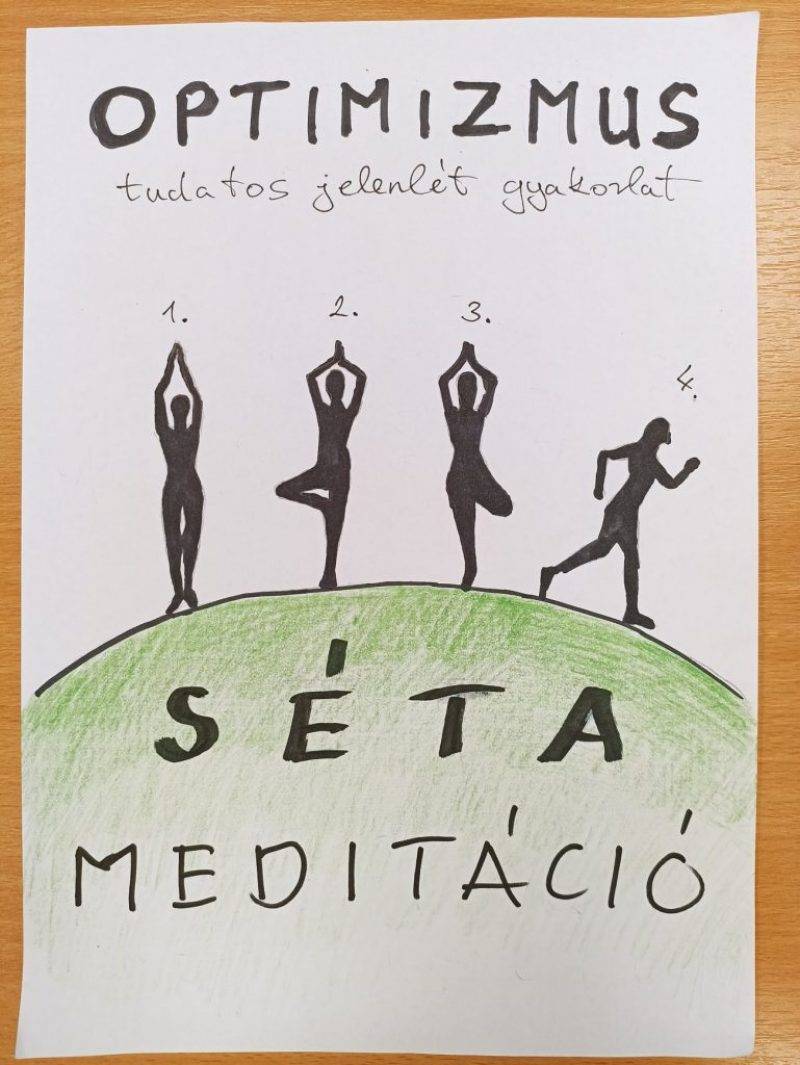 OPTIMIZMUS
tudatos jelenlét gyakorlat
1. 2. 3. 4.
SÉTA
MEDITÁCIÓ